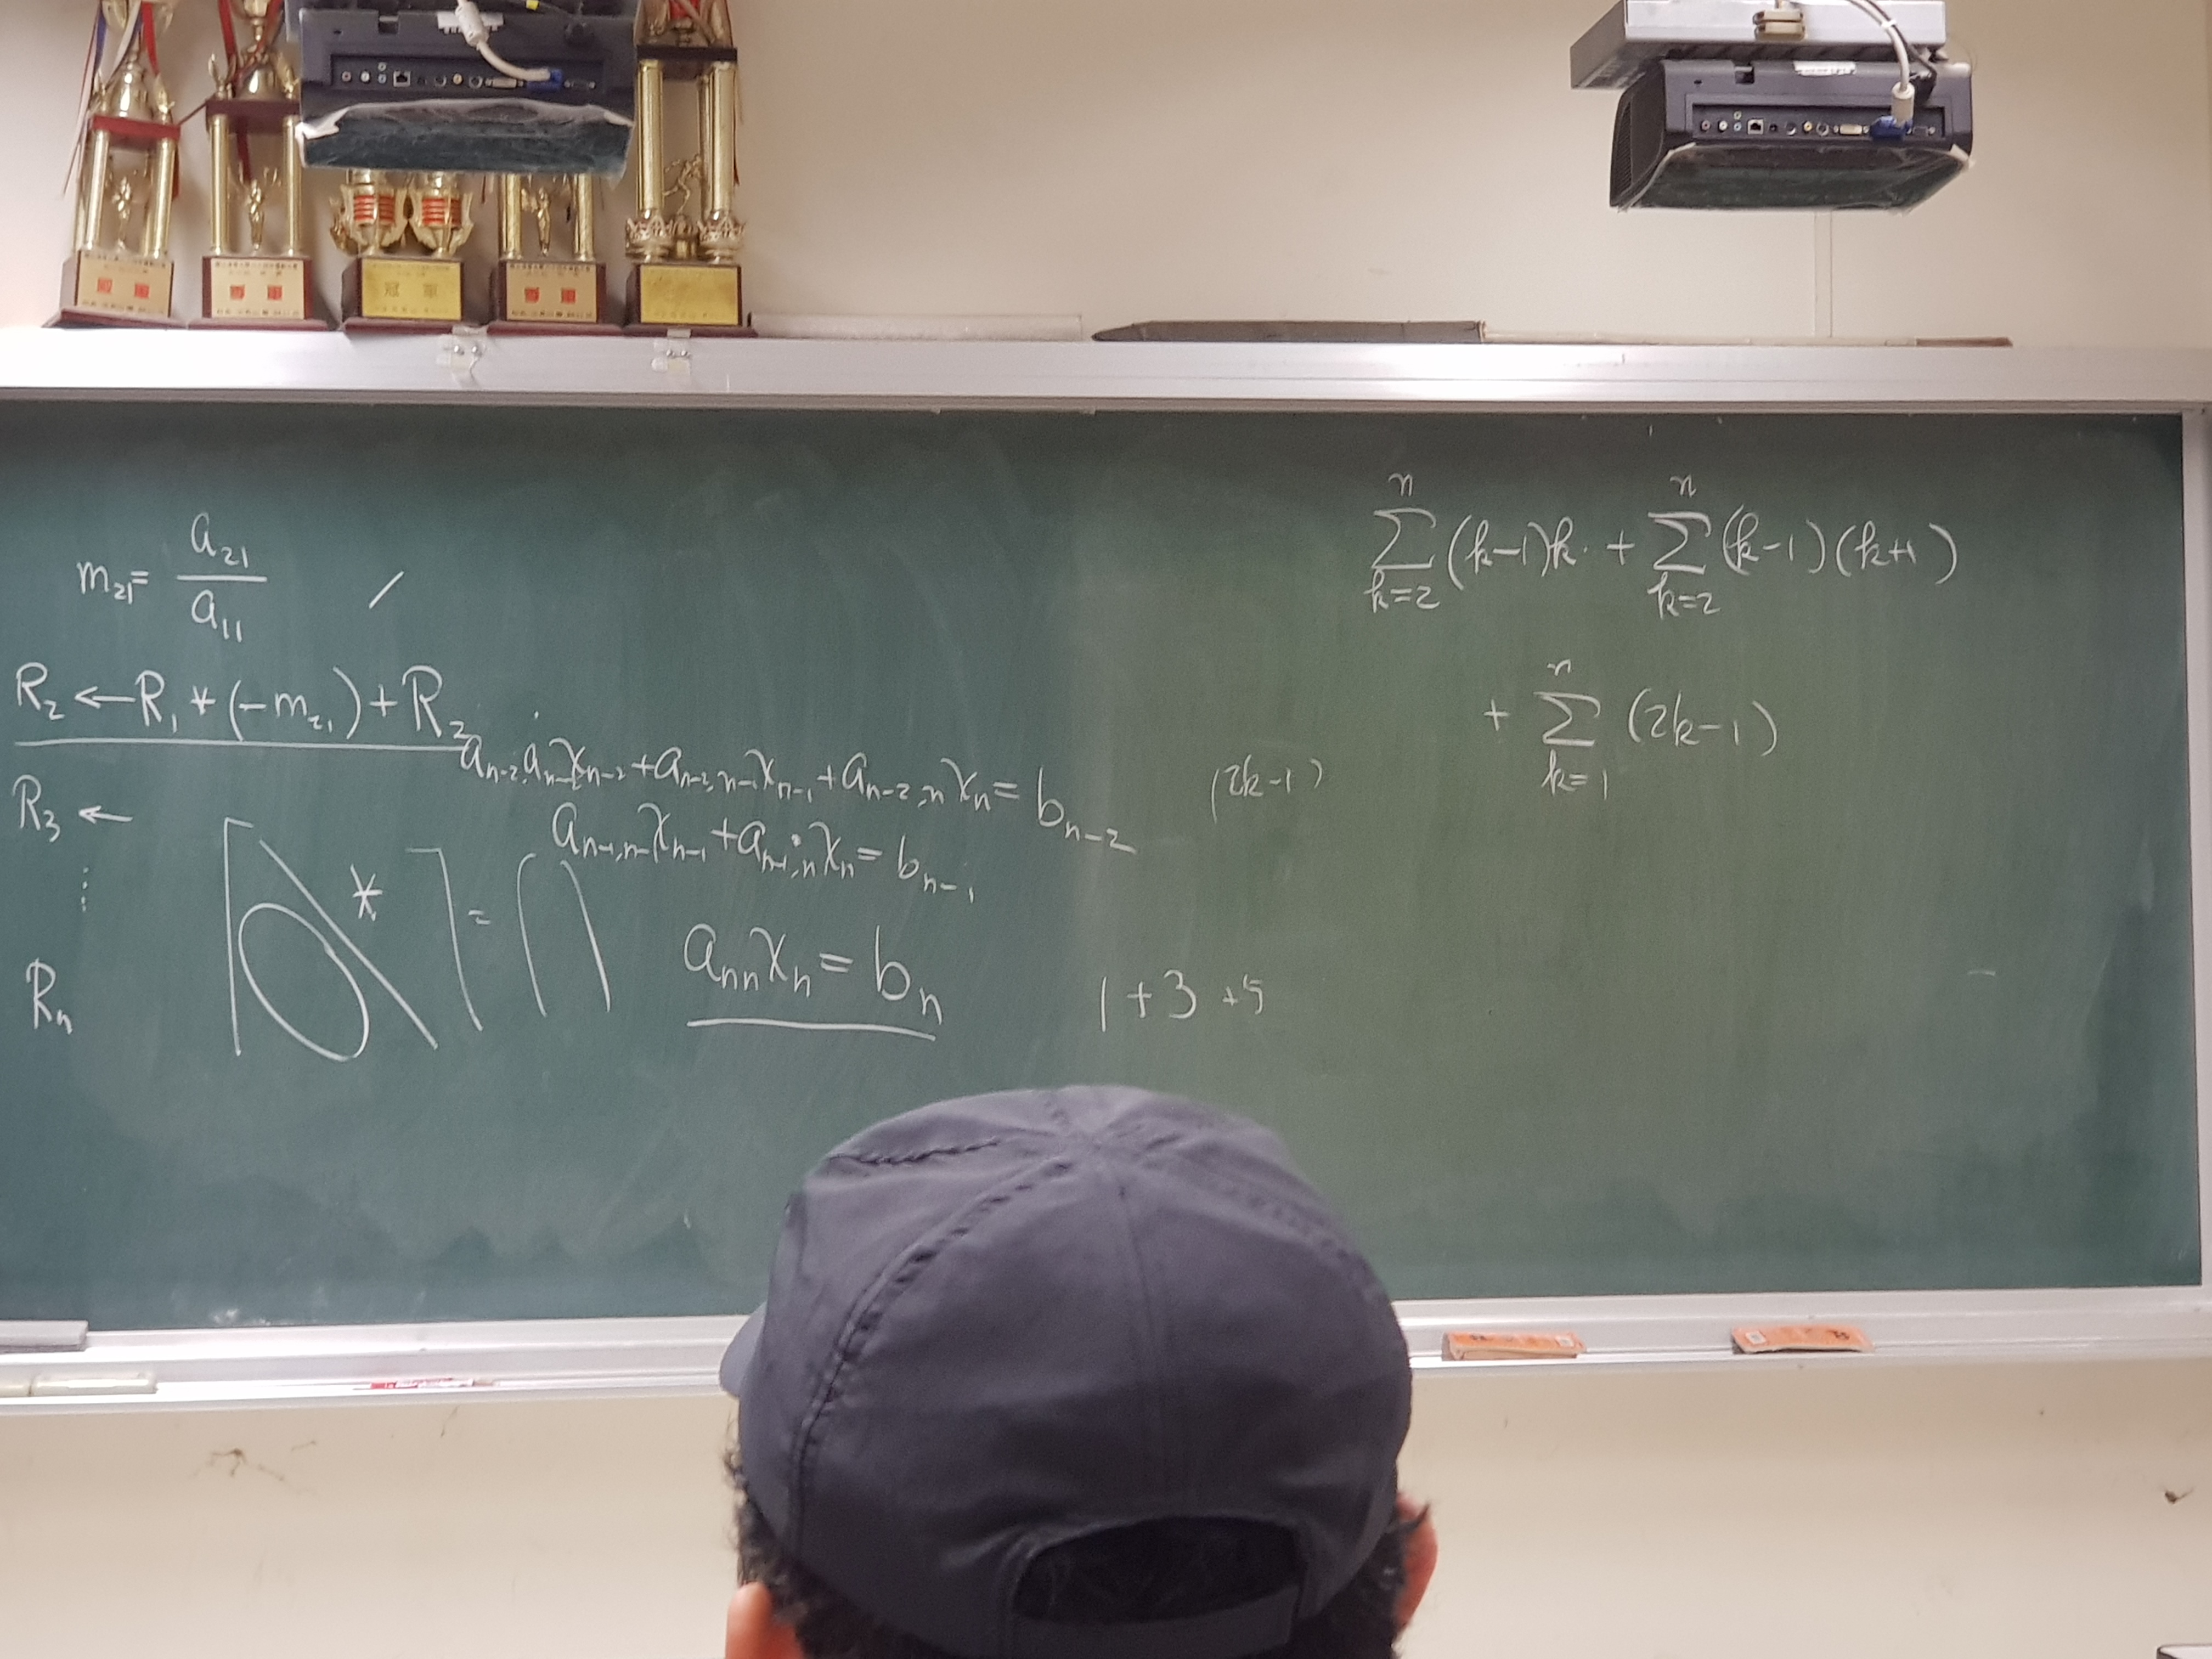 m₂₁= a₂₁/a₁₁
R₂ ←R₁ * (-m₂₁)+R₂
R₃ ←
⋮
Rₙ
* =
xₙ₋₂+aₙ₋₂,ₙ₋₁xₙ₋₁+aₙ₋₂,ₙxₙ= bₙ₋₂
xₙ₋₁+aₙ₋₁,ₙxₙ= bₙ₋₁
aₙₙxₙ= bₙ
(2k-1)
1+3+5
∑ₖ₌₂ⁿ (k-1)k + ∑ₖ₌₂ⁿ (k-1)(k+1)
+ ∑ₖ₌₁ⁿ (2k-1)
冠軍